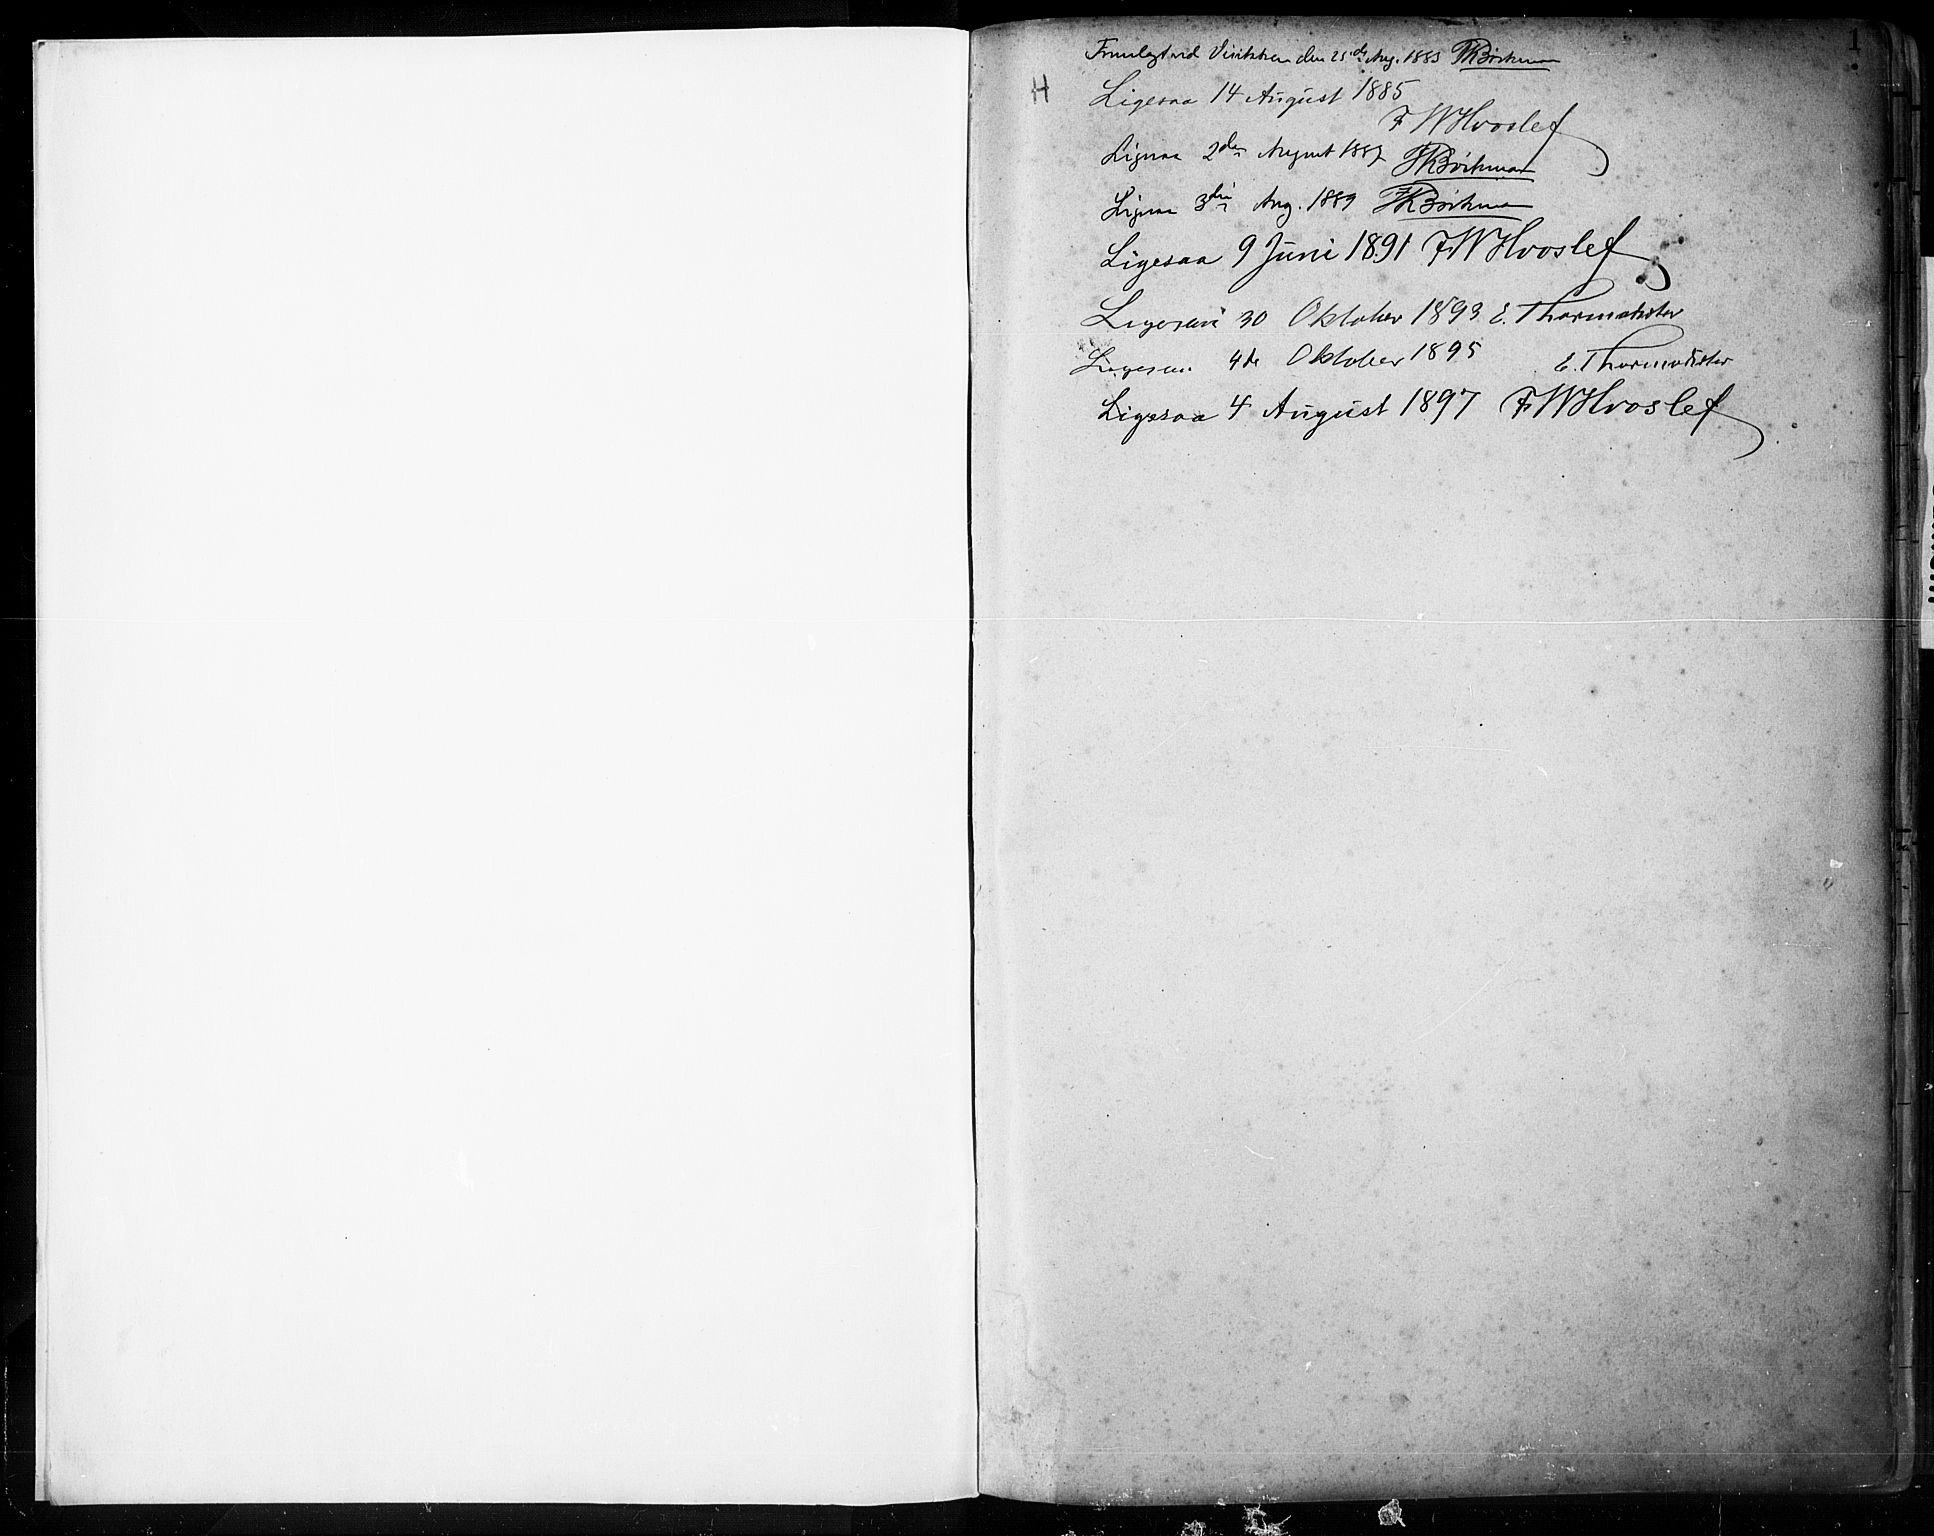 1
Fremlagt ved Visitatsen den 25de Aug. 1883 FKBöckman
H
Ligesaa 14 August 1885
FWHvoslef
Ligesaa 2den August 1887 FKBöckman
Ligesaa 3die Aug. 1889 FKBöckman
Ligesaa 9 Juni 1891 FWHvoslef
Ligesaa 30 Oktober 1893 E. Thormodsæter
Ligesaa 4de Oktober 1895 E. Thormodsæter
Ligesaa 4 August 1897 FWHvoslef